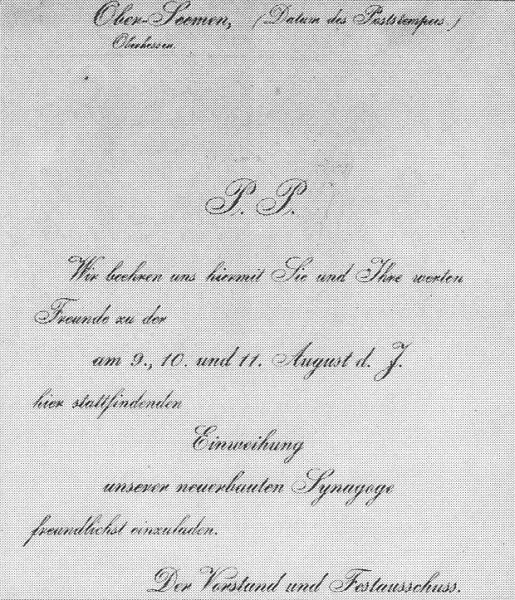 Ober-Seemen, (Datum des Poststempels.)
Oberhessen.
P. P.
Wir beehren uns hiermit Sie und Ihre werten
Freunde zu der
am 9., 10. und 11. August d. J.
hier stattfindenden
Einweihung
unserer neuerbauten Synagoge
freundlichst einzuladen.
Der Vorstand und Festausschuss.